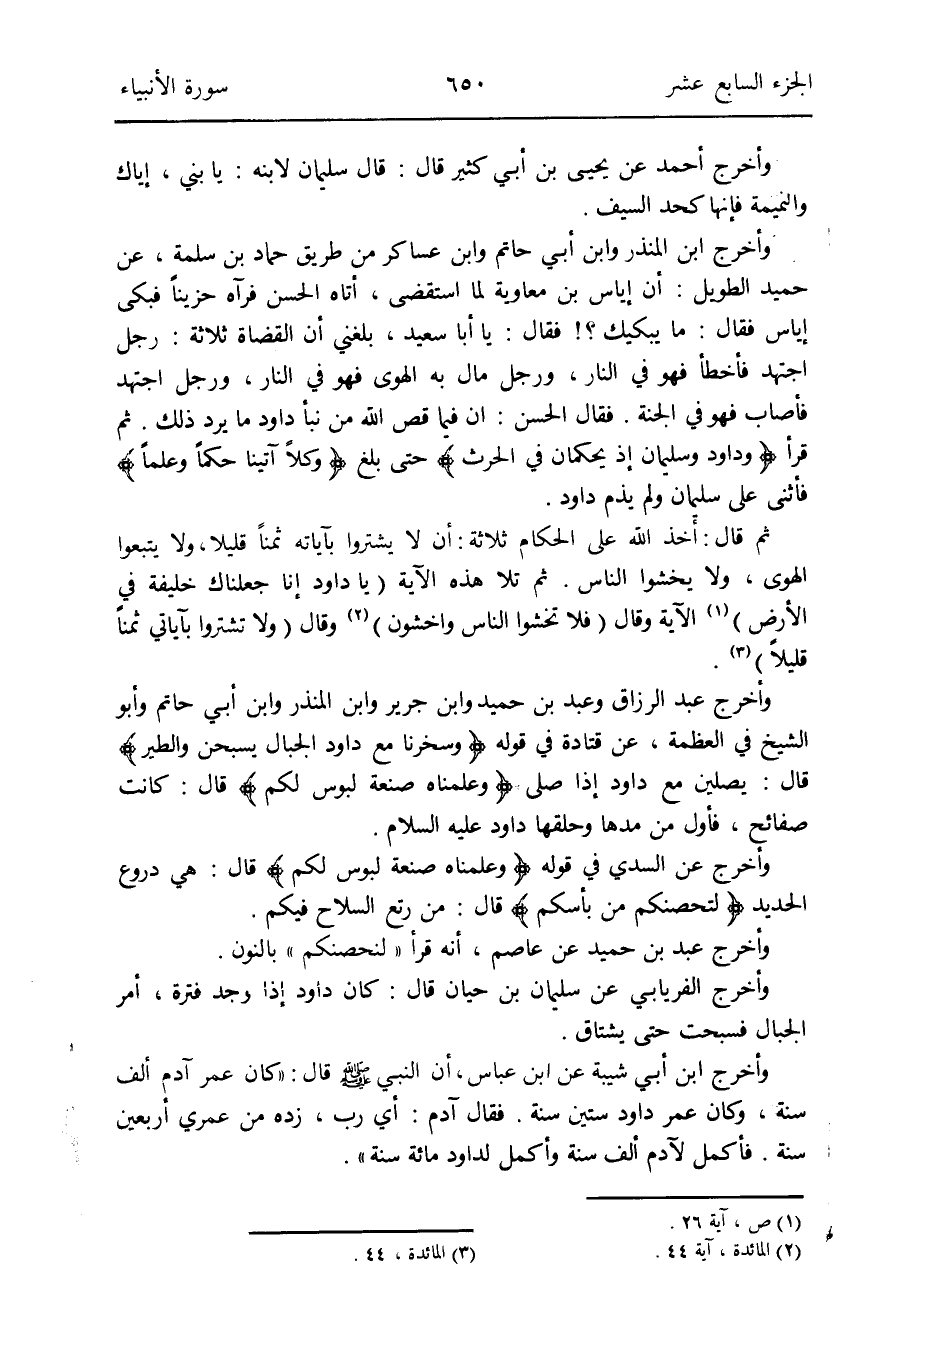 الجزء السابع عشر ٦٥٠ سورة الأنبياء
وأخرج أحمد عن يحيى بن أبي كثير قال : قال سليمان لابنه : يا بني ، إياك
والنميمة فإنها كحد السيف .
وأخرج ابن المنذر وابن أبي حاتم وابن عساكر من طريق حماد بن سلمة ، عن
حميد الطويل : أن إياس بن معاوية لما استقضى ، أتاه الحسن فرآه حزيناً فبكى
إياس فقال : ما يبكيك ؟! فقال : يا أبا سعيد ، بلغني أن القضاة ثلاثة : رجل
اجتهد فأخطأ فهو في النار ، ورجل مال به الهوى فهو في النار ، ورجل اجتهد
فأصاب فهو في الجنة . فقال الحسن : ان فيما قص الله من نبأ داود ما يرد ذلك . ثم
قرأ ﴿ وداود وسليمان إذ يحكمان في الحرث ﴾ حتى بلغ ﴿ وكلاً آتينا حكماً وعلماً ﴾
فأثنى على سليمان ولم يذم داود .
ثم قال : أخذ الله على الحكام ثلاثة : أن لا يشتروا بآياته ثمناً قليلا ، ولا يتبعوا
الهوى ، ولا يخشوا الناس . ثم تلا هذه الآية ( يا داود إنا جعلناك خليفة في
الأرض )(١) الآية وقال ( فلا تخشوا الناس واخشون )(٢) وقال ( ولا تشتروا بآياتي ثمناً
قليلاً )(٣) .
وأخرج عبد الرزاق وعبد بن حميد وابن جرير وابن المنذر وابن أبي حاتم وأبو
الشيخ في العظمة ، عن قتادة في قوله ﴿ وسخرنا مع داود الجبال يسبحن والطير ﴾
قال : يصلين مع داود إذا صلى ﴿ وعلمناه صنعة لبوس لكم ﴾ قال : كانت
صفائح ، فأول من مدها وحلقها داود عليه السلام .
وأخرج عن السدي في قوله ﴿ وعلمناه صنعة لبوس لكم ﴾ قال : هي دروع
الحديد ﴿ لتحصنكم من بأسكم ﴾ قال : من رتع السلاح فيكم .
وأخرج عبد بن حميد عن عاصم ، أنه قرأ « لنحصنكم » بالنون .
وأخرج الفريابي عن سليمان بن حيان قال : كان داود إذا وجد فترة ، أمر
الجبال فسبحت حتى يشتاق .
وأخرج ابن أبي شيبة عن ابن عباس ، أن النبي ﷺ قال : «كان عمر آدم ألف
سنة ، وكان عمر داود ستين سنة . فقال آدم : أي رب ، زده من عمري أربعين
سنة . فأكمل لآدم ألف سنة وأكمل لداود مائة سنة» .
(١) ص ، آية ٢٦ .
(٢) المائدة ، آية ٤٤ .
(٣) المائدة ، ٤٤ .